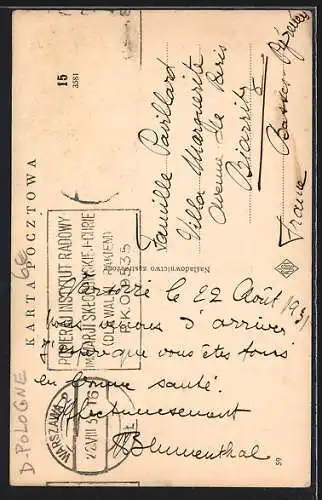 KARTA POCZTOWA
15
3581
Famille Pavillart
Villa Marguerite
Avenue
Biarritz
Basses-Pyrénées
France
Nakładnictwo zastrzeżone
POPIERAJ INSTYTUT RADOWY
IM. MARJI SKŁODOWSKIEJ-CURIE
(DO WALKI Z RAKIEM)
P.K.O. 9535
WARSZAWA
22.VIII 31
le 22 Août 1931
Nous venons d'arriver
J'espère que vous êtes tous
en bonne santé.
Affectueusement
Blumenthal
59
D-POLOGNE
6E